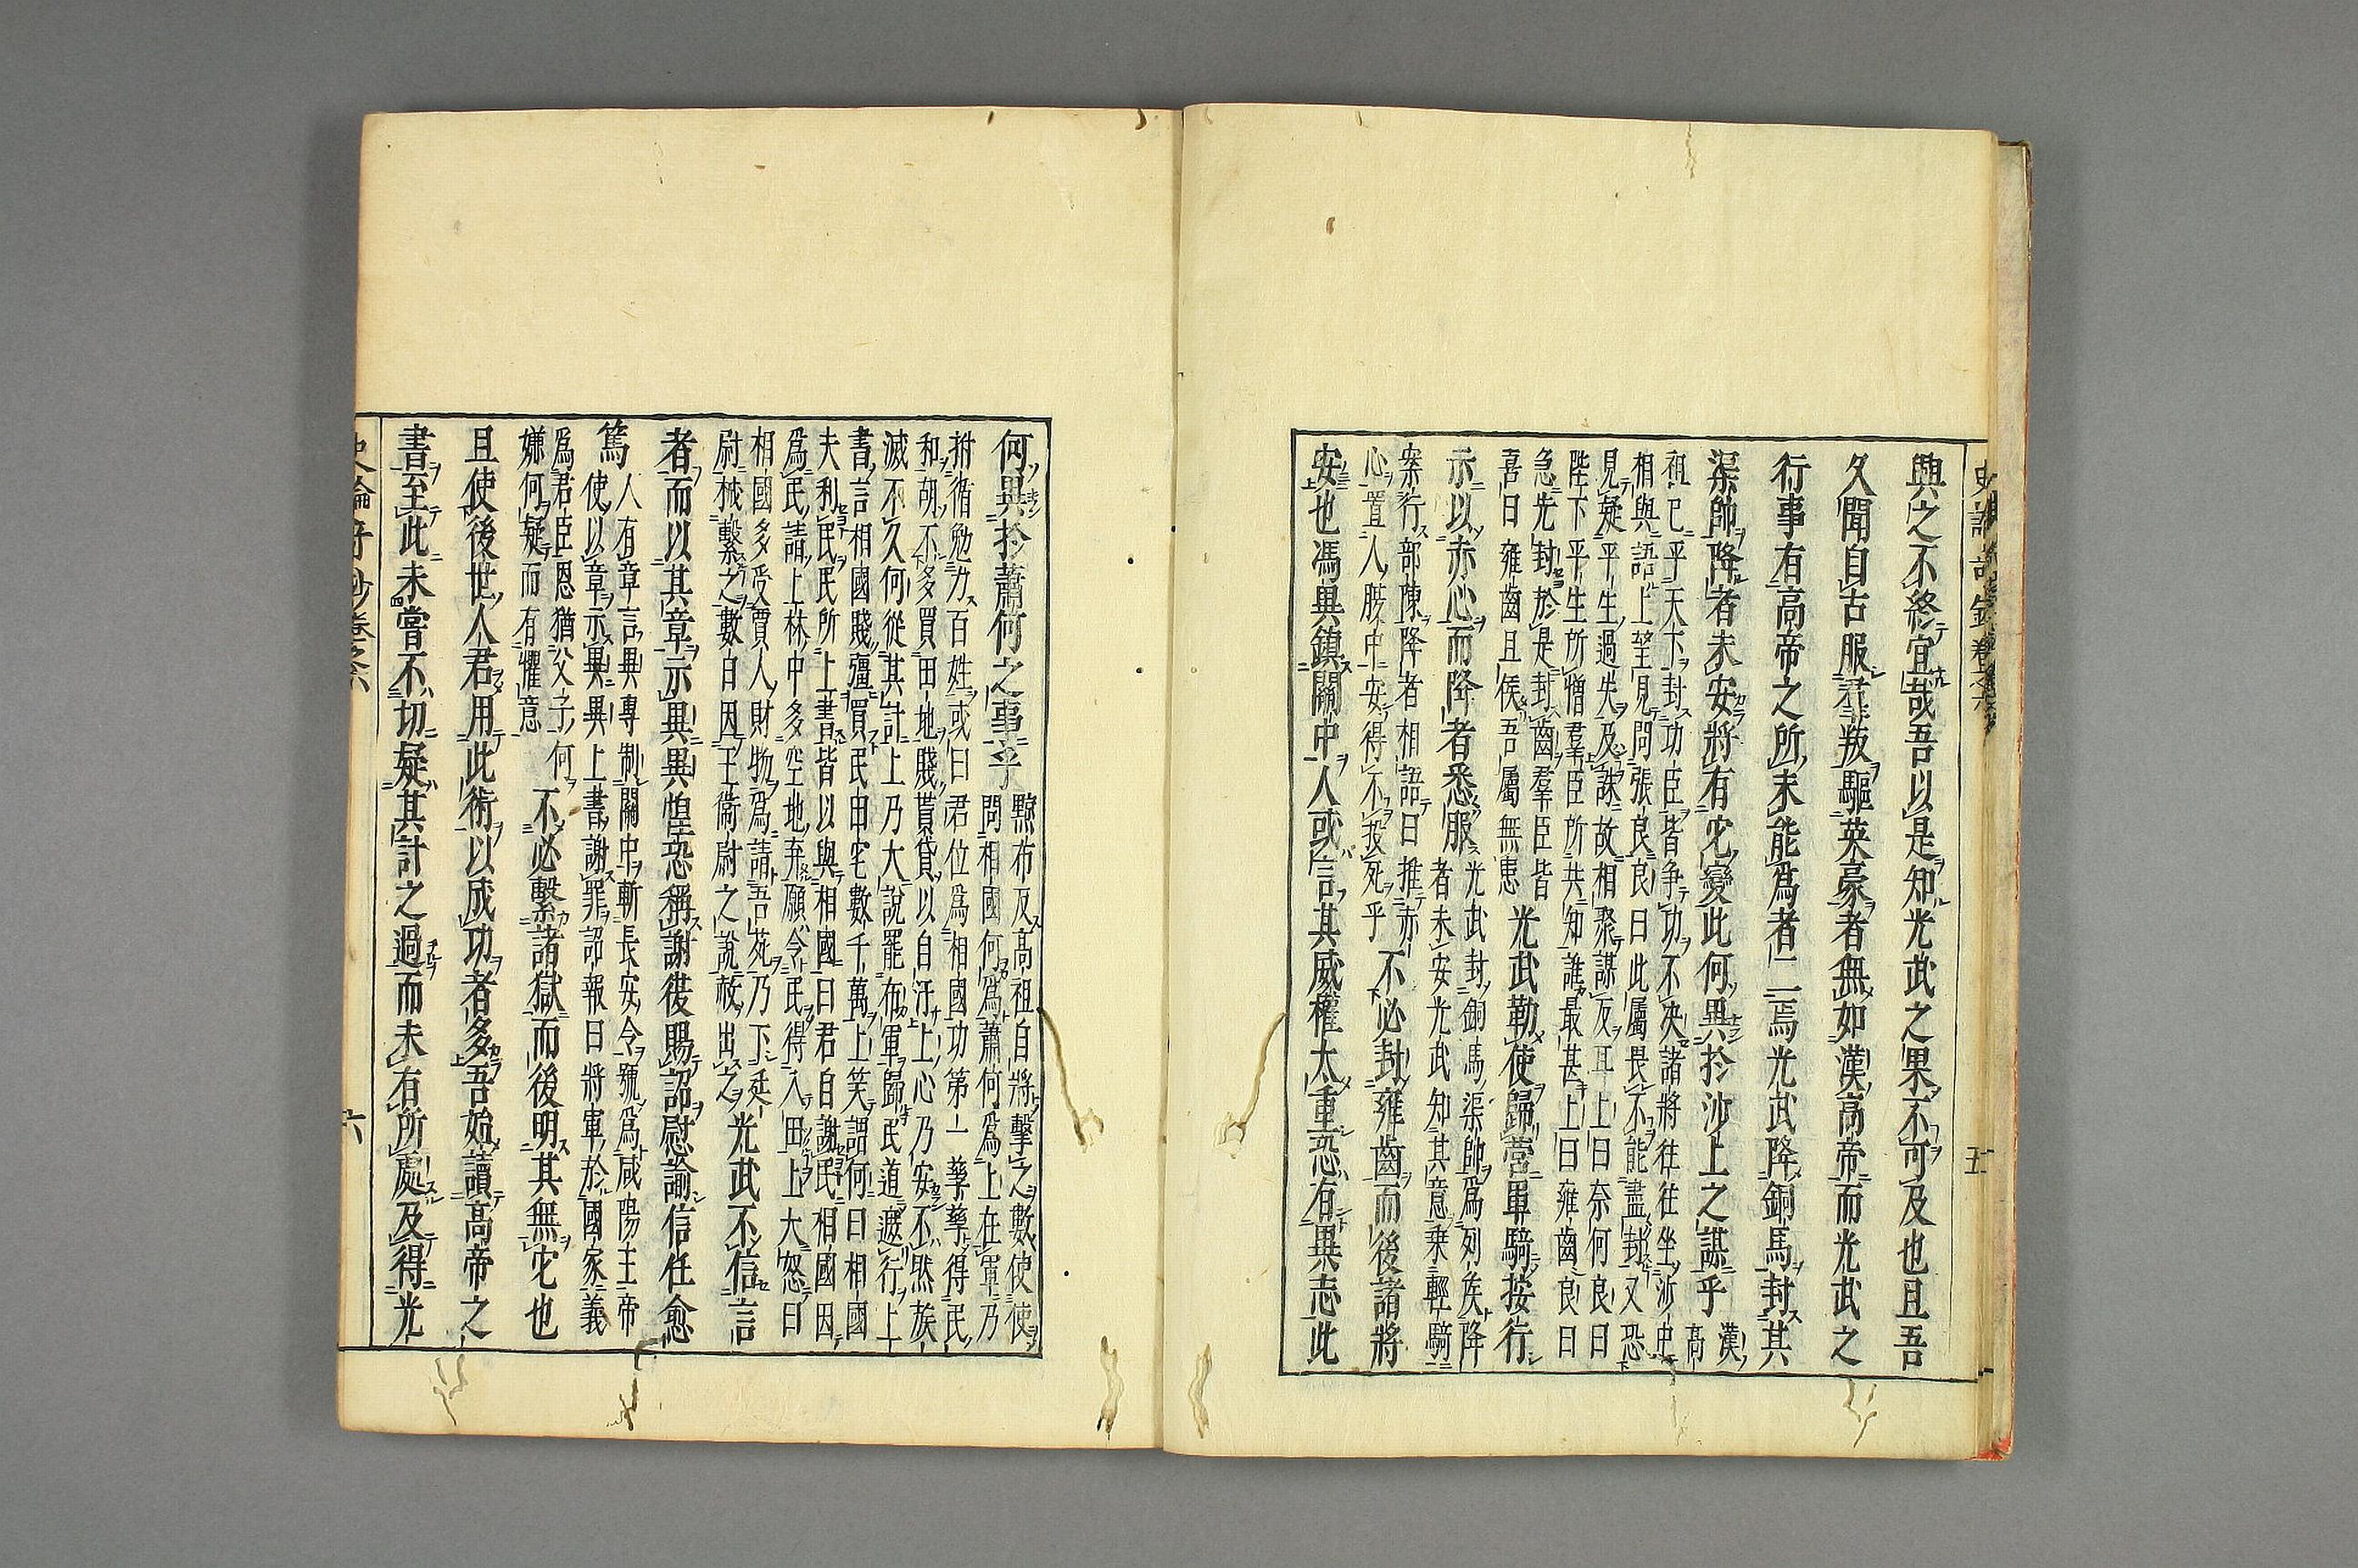 與之不終宜哉吾以是知光武之果不可及也且吾
久聞自古服君叛驅英豪者無如漢高帝而光武之
行事有高帝之所未能爲者二焉光武降銅馬封其
渠帥降者未安將有它變此何異於沙上之謀乎漢高
祖已平天下封功臣皆爭功不決諸將往往坐沙中
相與語上望見問張良良曰此屬畏不能盡封又恐
見疑平生過失及誅故相聚謀反耳上曰奈何良曰
陛下平生所憎羣臣所共知誰最甚上曰雍齒良曰
急先封於是封齒羣臣皆
喜曰雍齒且侯吾屬無患
光武勒使歸營單騎按行
示以赤心而降者悉服
光武封銅馬渠帥爲列侯降
者未安光武知其意乘輕騎
案行部陳降者相語曰推赤
心置人腹中安得不投死乎
不必封雍齒而後諸將
安也馮異鎮關中人或言其威權太重恐有異志此
何異於蕭何之事乎
黥布反高祖自將擊之數使使
問相國何爲蕭何爲上在軍乃
拊循勉力百姓或曰君位爲相國功第一孳孳得民
和胡不多買田地賤貰貸以自汙上心乃安不然族
滅不久何從其計上乃大說罷布軍歸民道遮行上
書言相國賤彊買民田宅數千萬上笑謂何曰相國
夫利民民所上書皆以與相國曰君自謝民相國因
爲民請上林中多空地弃願令民得入田上大怒曰
相國多受賈人財物爲請吾苑乃下廷
尉械繫之數日因王衞尉之說赦出之
光武不信言
者而以其章示異異惶恐稱謝復賜詔慰諭信任愈
篤
人有章言異專制關中斬長安令號爲咸陽王帝
使以章示異異上書謝罪詔報曰將軍於國家義
爲君臣恩猶父子何
嫌何疑而有懼意
不必繫諸獄而後明其無它也
且使後世人君用此術以成功者多吾始讀高帝之
書至此未嘗不切疑其計之過而未有所處及得光
五
六